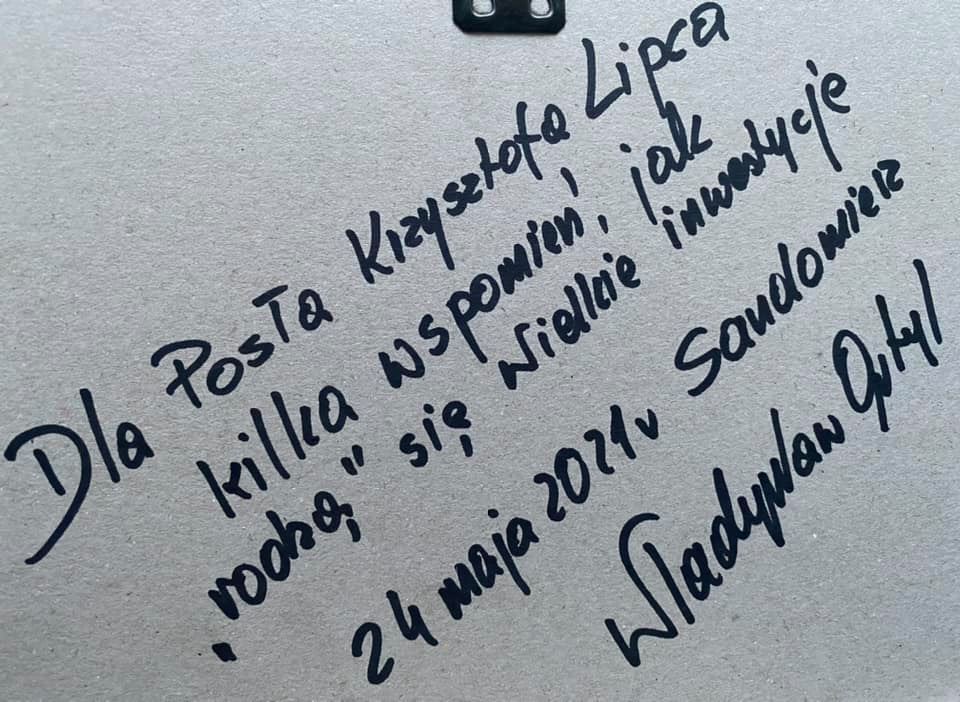 Dla Posła Krzysztofa Lipca
kilka wspomień, jak
"rodzą" się wielkie inwestycje
24 maja 2021r Sandomierz
Władysław Ortyl